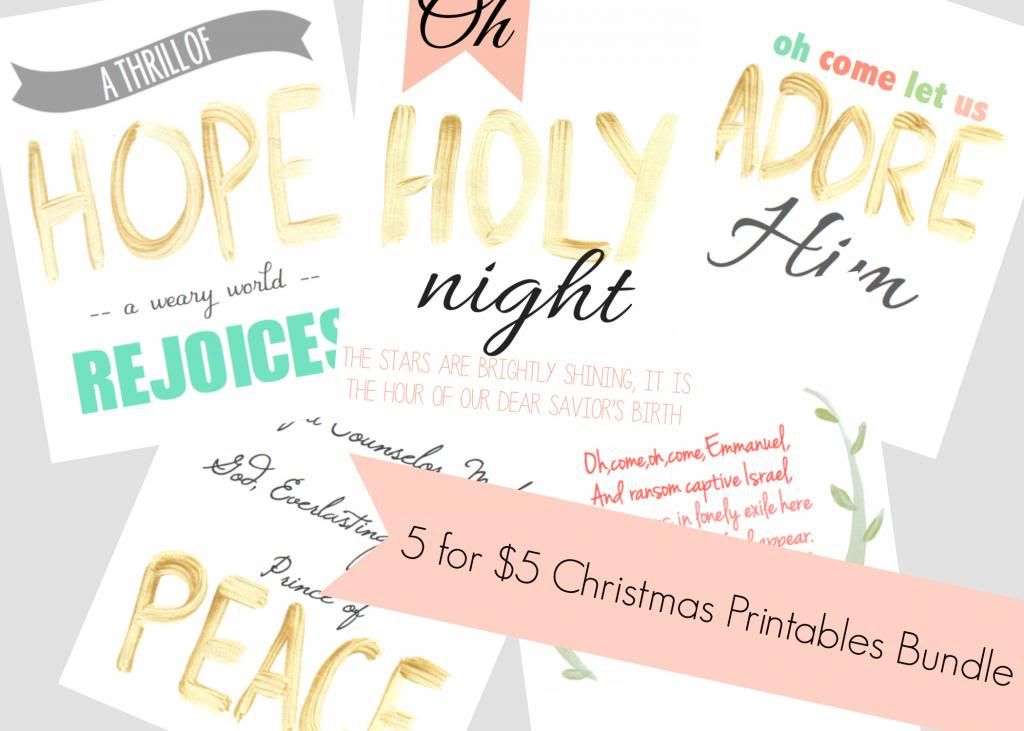 A THRILL OF
HOPE
-- a weary world --
REJOICES
Oh
HOLY
night
THE STARS ARE BRIGHTLY SHINING, IT IS
THE HOUR OF OUR DEAR SAVIOR'S BIRTH
oh come let us
ADORE
Him
Counselor,
God, Everlasting
Prince of
PEACE
Oh, come, oh, come, Emmanuel,
And ransom captive Israel,
in lonely exile here
appear.
5 for $5 Christmas Printables Bundle